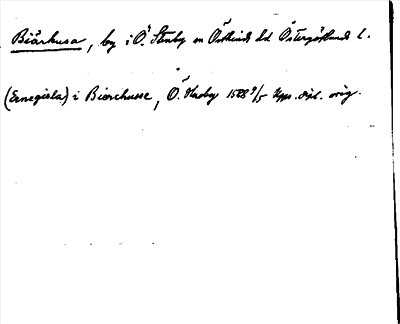 Biärhusa, by i Ö. Stenby sn Östkinds hd Östergötlands l.
(Ernegisla) i Bierchusse, Ö. Stæby 1528 9/5 Upps. dipl. orig.